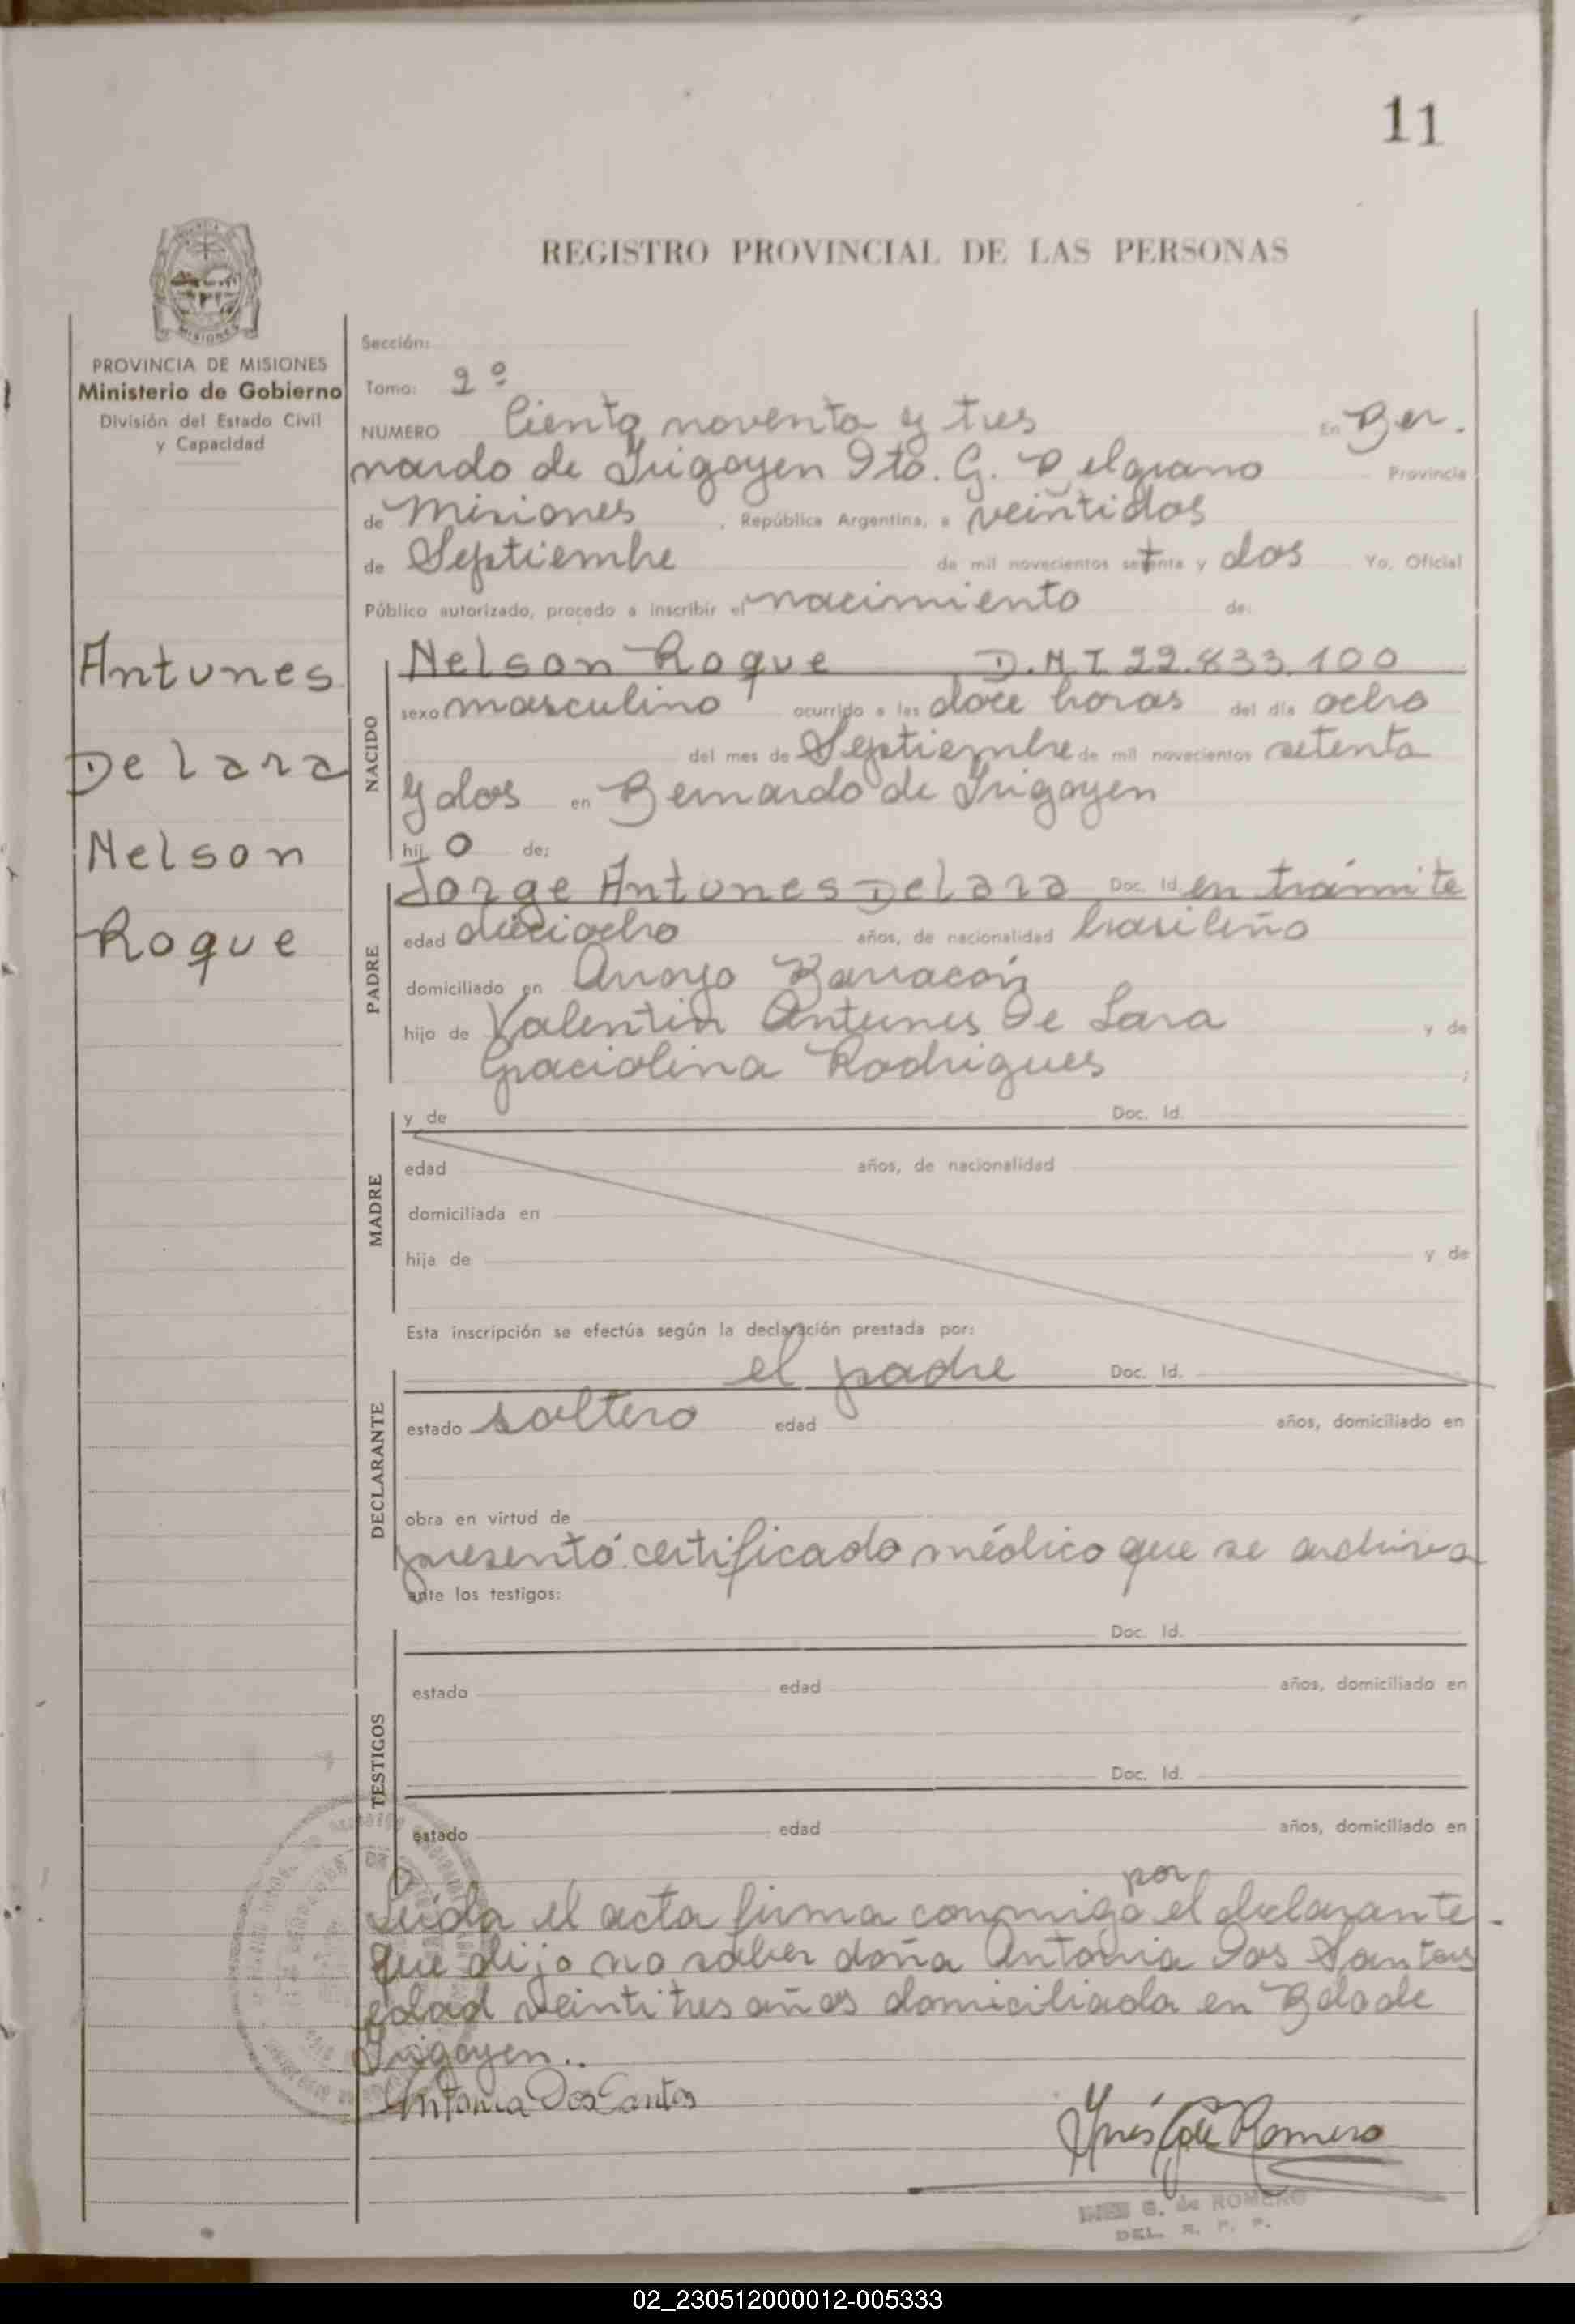 11
REGISTRO PROVINCIAL DE LAS PERSONAS
MISIONES
PROVINCIA DE MISIONES
Ministerio de Gobierno
División del Estado Civil
y Capacidad
Antunes
De Lara
Nelson
Roque
Sección:
Tomo: 2º
NUMERO Ciento noventa y tres En Ber.
nardo de Irigoyen Dto. G. Belgrano Provincia
de Misiones, República Argentina, a veintidos
de Septiembre de mil novecientos setenta y dos Yo, Oficial
Público autorizado, procedo a inscribir el nacimiento de:
NACIDO
Nelson Roque D.N.I 22.833.100
sexo masculino ocurrido a las doce horas del día ocho
del mes de Septiembre de mil novecientos setenta
y dos en Bernardo de Irigoyen
hij o de:
PADRE
Jorge Antunes De Lara Doc. Id. en trámite
edad dieciocho años, de nacionalidad brasileño
domiciliado en Arroyo Barracón
hijo de Valentin Antunes De Lara y de
Graciolina Rodrigues ;
MADRE
y de Doc. Id.
edad años, de nacionalidad
domiciliada en
hija de y de
Esta inscripción se efectúa según la declaración prestada por:
DECLARANTE
el padre Doc. Id.
estado soltero edad años, domiciliado en
obra en virtud de
presentó certificado médico que se archiva
ante los testigos:
TESTIGOS
Doc. Id.
estado edad años, domiciliado en
Doc. Id.
estado edad años, domiciliado en
por
Leída el acta firma conmigo el declarante
que dijo no saber doña Antonia Dos Santos
edad veintitres años domiciliada en Bdo de
Irigoyen..
Antonia Dos Santos
Inés G de Romero
INES G. de ROMERO
DEL. R. P. P.
02_230512000012-005333